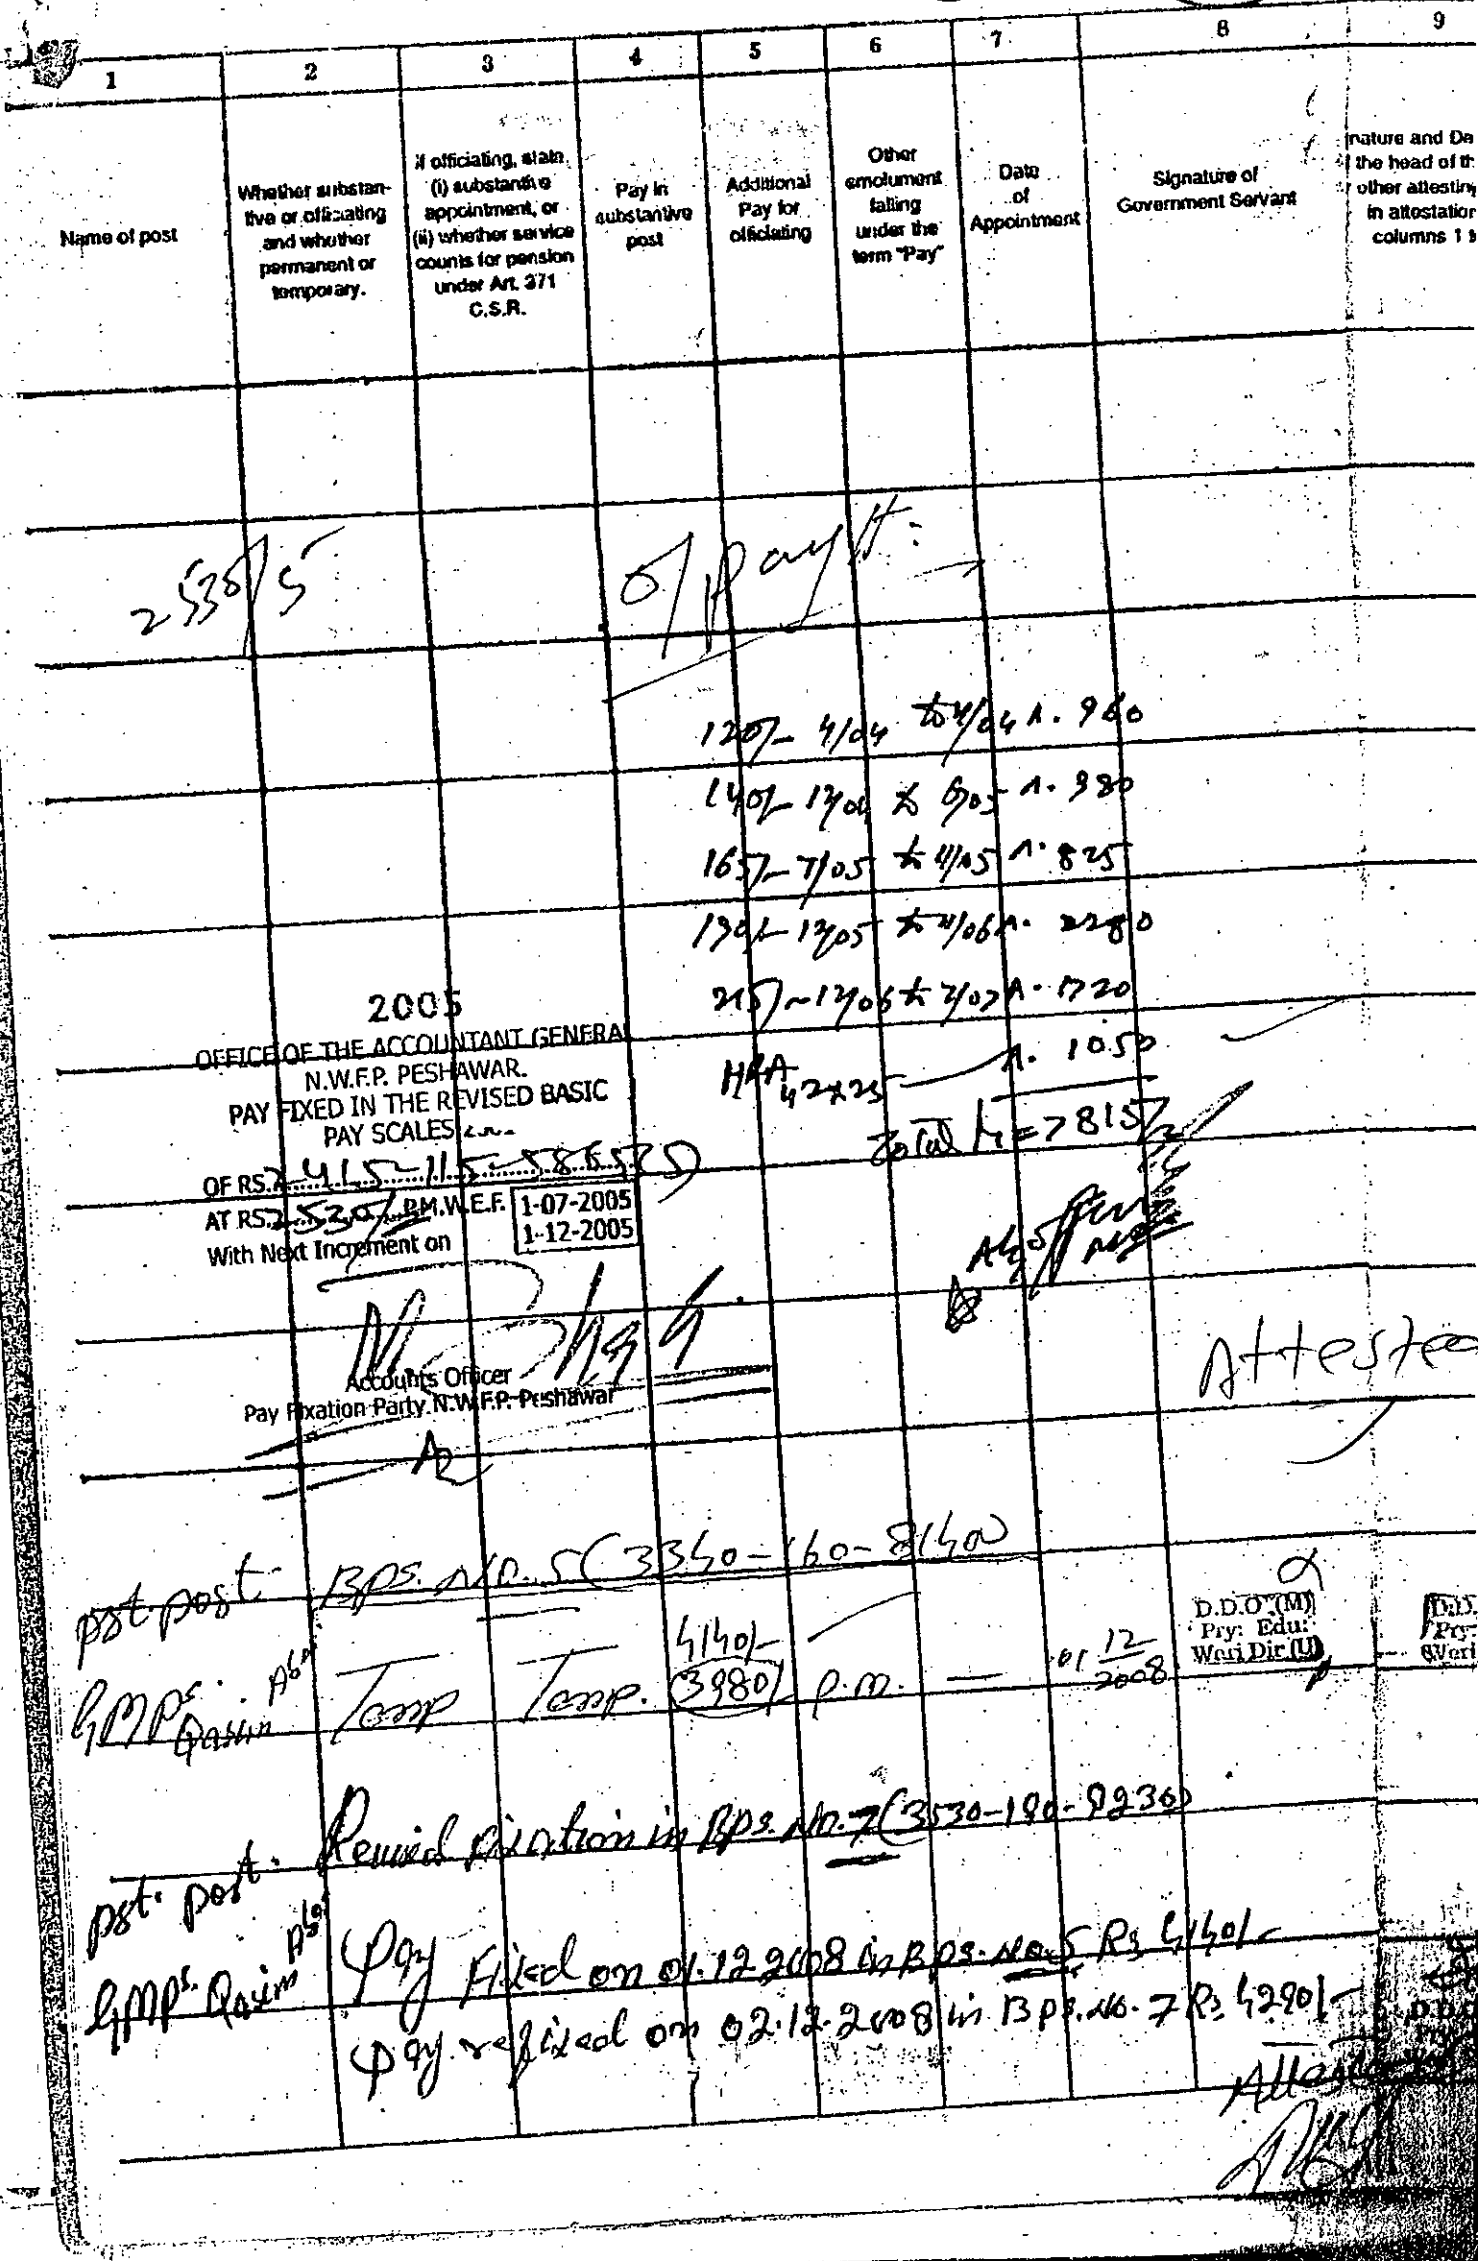 1 2 3 4 5 6 7 8 9
Name of post
Whether substan-
tive or officiating
and whether
permanent or
temporary.
if officiating, state
(i) substantive
appointment, or
(ii) whether service
counts for pension
under Art. 371
C.S.R.
Pay in
substantive
post
Additional
Pay for
officiating
Other
emolument
falling
under the
term "Pay"
Date
of
Appointment
Signature of
Government Servant
nature and Da
the head of th
other attesting
in attestation
columns 1 t
2530/5
o/pay
120/- 4/04 to 4/04 960
140/- 12/04 to 6/05 980
165/- 7/05 to 11/05 825
190/- 12/05 to 11/06 2280
215/- 12/06 to 7/07 1720
HRA 42x25 1050
Total 7815/-
2005
OFFICE OF THE ACCOUNTANT GENERAL
N.W.F.P. PESHAWAR.
PAY FIXED IN THE REVISED BASIC
PAY SCALES
OF RS. 2415-115-5865(5)
AT RS. 2530/- P.M.W.E.F. 1-07-2005
With Next Increment on 1-12-2005
Accounts Officer
Pay Fixation Party N.W.F.P. Peshawar
Attested
pst. post Bps. No. 5 (3340-160-8140)
GMPS. Qasim Temp Temp. 4140/- (3980/) p.m. — 01 12/2008
D.D.O (M)
Pry: Edu:
Wari Dir (U)
D.D.
Pry:
Wari
pst. post. Revised fixation in Bps. No. 7 (3530-190-9230)
GMPS. Qasim Pay Fixed on 01.12.2008 in Bps. No. 5 Rs 4140/-
pay refixed on 02.12.2008 in Bps. No. 7 Rs 4290/-
Attested